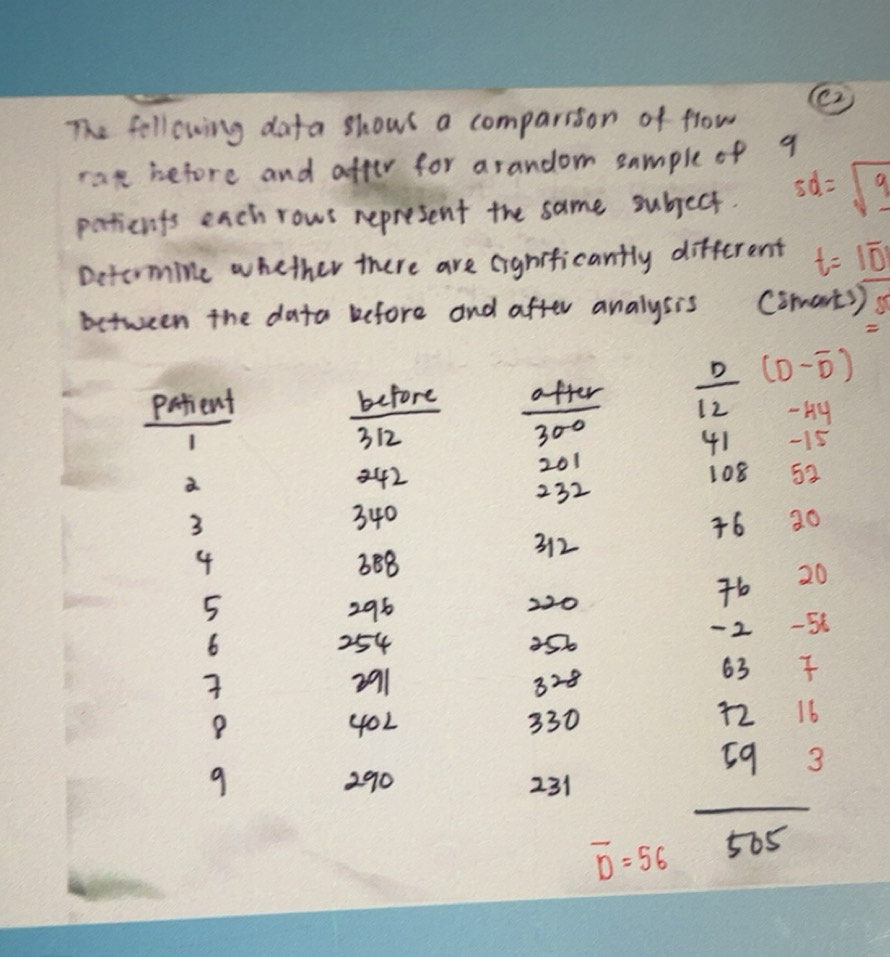 C2
The following data shows a comparison of flow
rate before and after for a random sample of 9
patients each rows represent the same subject. sd = √9
Determine whether there are significantly different t = |D̄|
between the data before and after analysis (5marks)
=
Patient before after D (D-D̄)
1 312 300 12 -44
2 242 201 41 -15
3 340 232 108 52
4 388 312 76 20
5 296 220 76 20
6 254 256 -2 -58
7 391 328 63 7
8 402 330 72 16
9 290 231 59 3
D̄ = 56 505